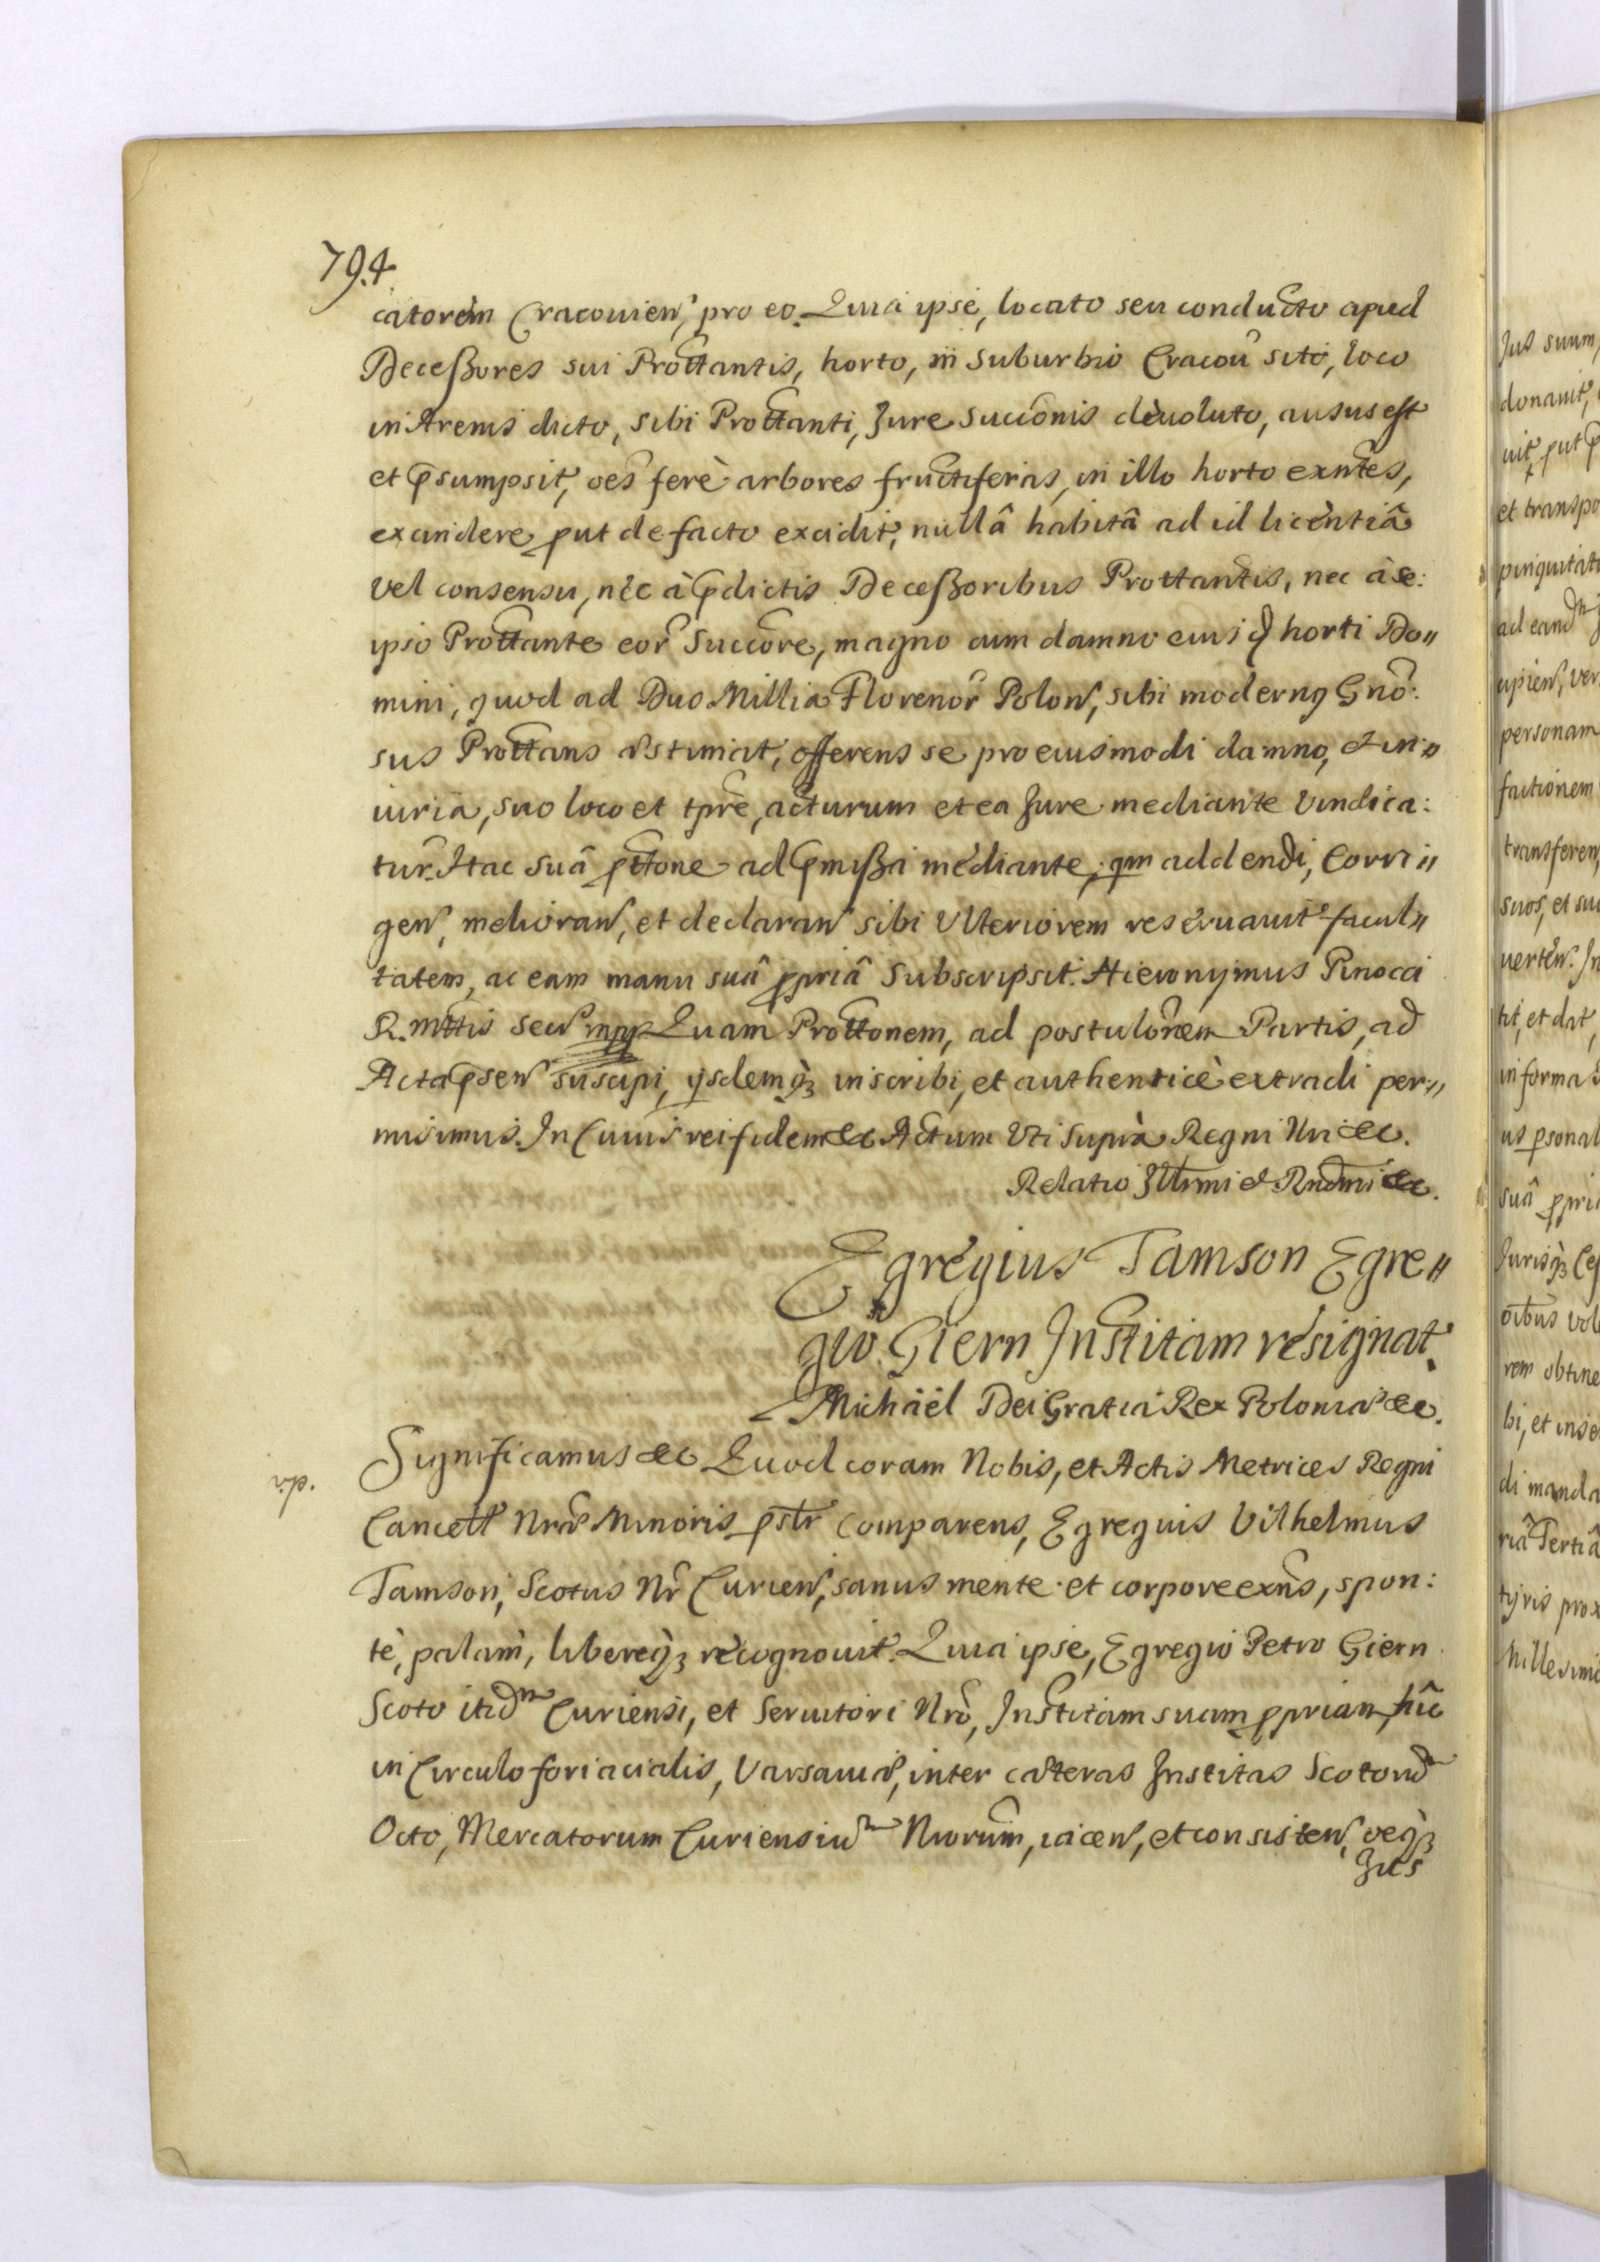 794
catorem Cracouien, pro eo. Quia ipse, locato seu conducto apud
Deceßores sui Prottantis, horto, in suburbio Cracou sito, loco
in Arenis dicto, sibi Prottanti, Jure Succonis deuoluto, ausus est
et psumpsit, oes ferè arbores fructiferas, in illo horto exntes,
excindere, put de facto excidit, nullâ habitâ ad id licentiâ
vel consensu, nec à pdictis Deceßoribus Prottantis, nec à se:
ipso Prottante eor Succore, magno cum damno eiusd horti Do〃
mini, quod ad Duo Millia Florenor Polon, sibi modernus Gno:
sus Prottans æstimat, offerens se pro eiusmodi damno, et in〃
iuria, suo loco et tpre, acturum et ea Jure mediante vindica:
tur. Hac suâ pttone ad pmißa mediante, qm addendi, Corri〃
gen, melioran, et declaran sibi Ulteriorem reseruauit facul〃
tatem, ac eam manu suâ ppriâ Subscripsit. Hieronymus Pinocci
R. Mttis Secr mpp Quam Prottonem, ad postulonem Partis, ad
Acta psen suscipi, ijsdemqz inscribi, et authenticè extradi per〃
misimus. In Cuius rei fidem &c Actum Uti supra Regni Nri &c.
Relatio Illrmi & Rndmi &c.
Egregius Tamson Egre〃
gio Giern Institam resignat.
Michaël Dei Gratia Rex Poloniæ &c.
Significamus &c Quod coram Nobis, et Actis Metrices Regni
Cancell Nræ Minoris pstr comparens, Egregius Vilhelmus
Tamson, Scotus Nr Curien, sanus mente et corpore exns, spon:
tè, palam, libereqz recognouit. Quia ipse, Egregio Petro Giern
Scoto itidm Curiensi, et Seruitori Nro, Institam suam ppriam, hic
in Circulo fori acialis, Varsauiæ, inter cæteras Institas Scotorum
Octo, Mercatorum Curiensium Nrorum, iacen, et consisten, oeqz
Jus